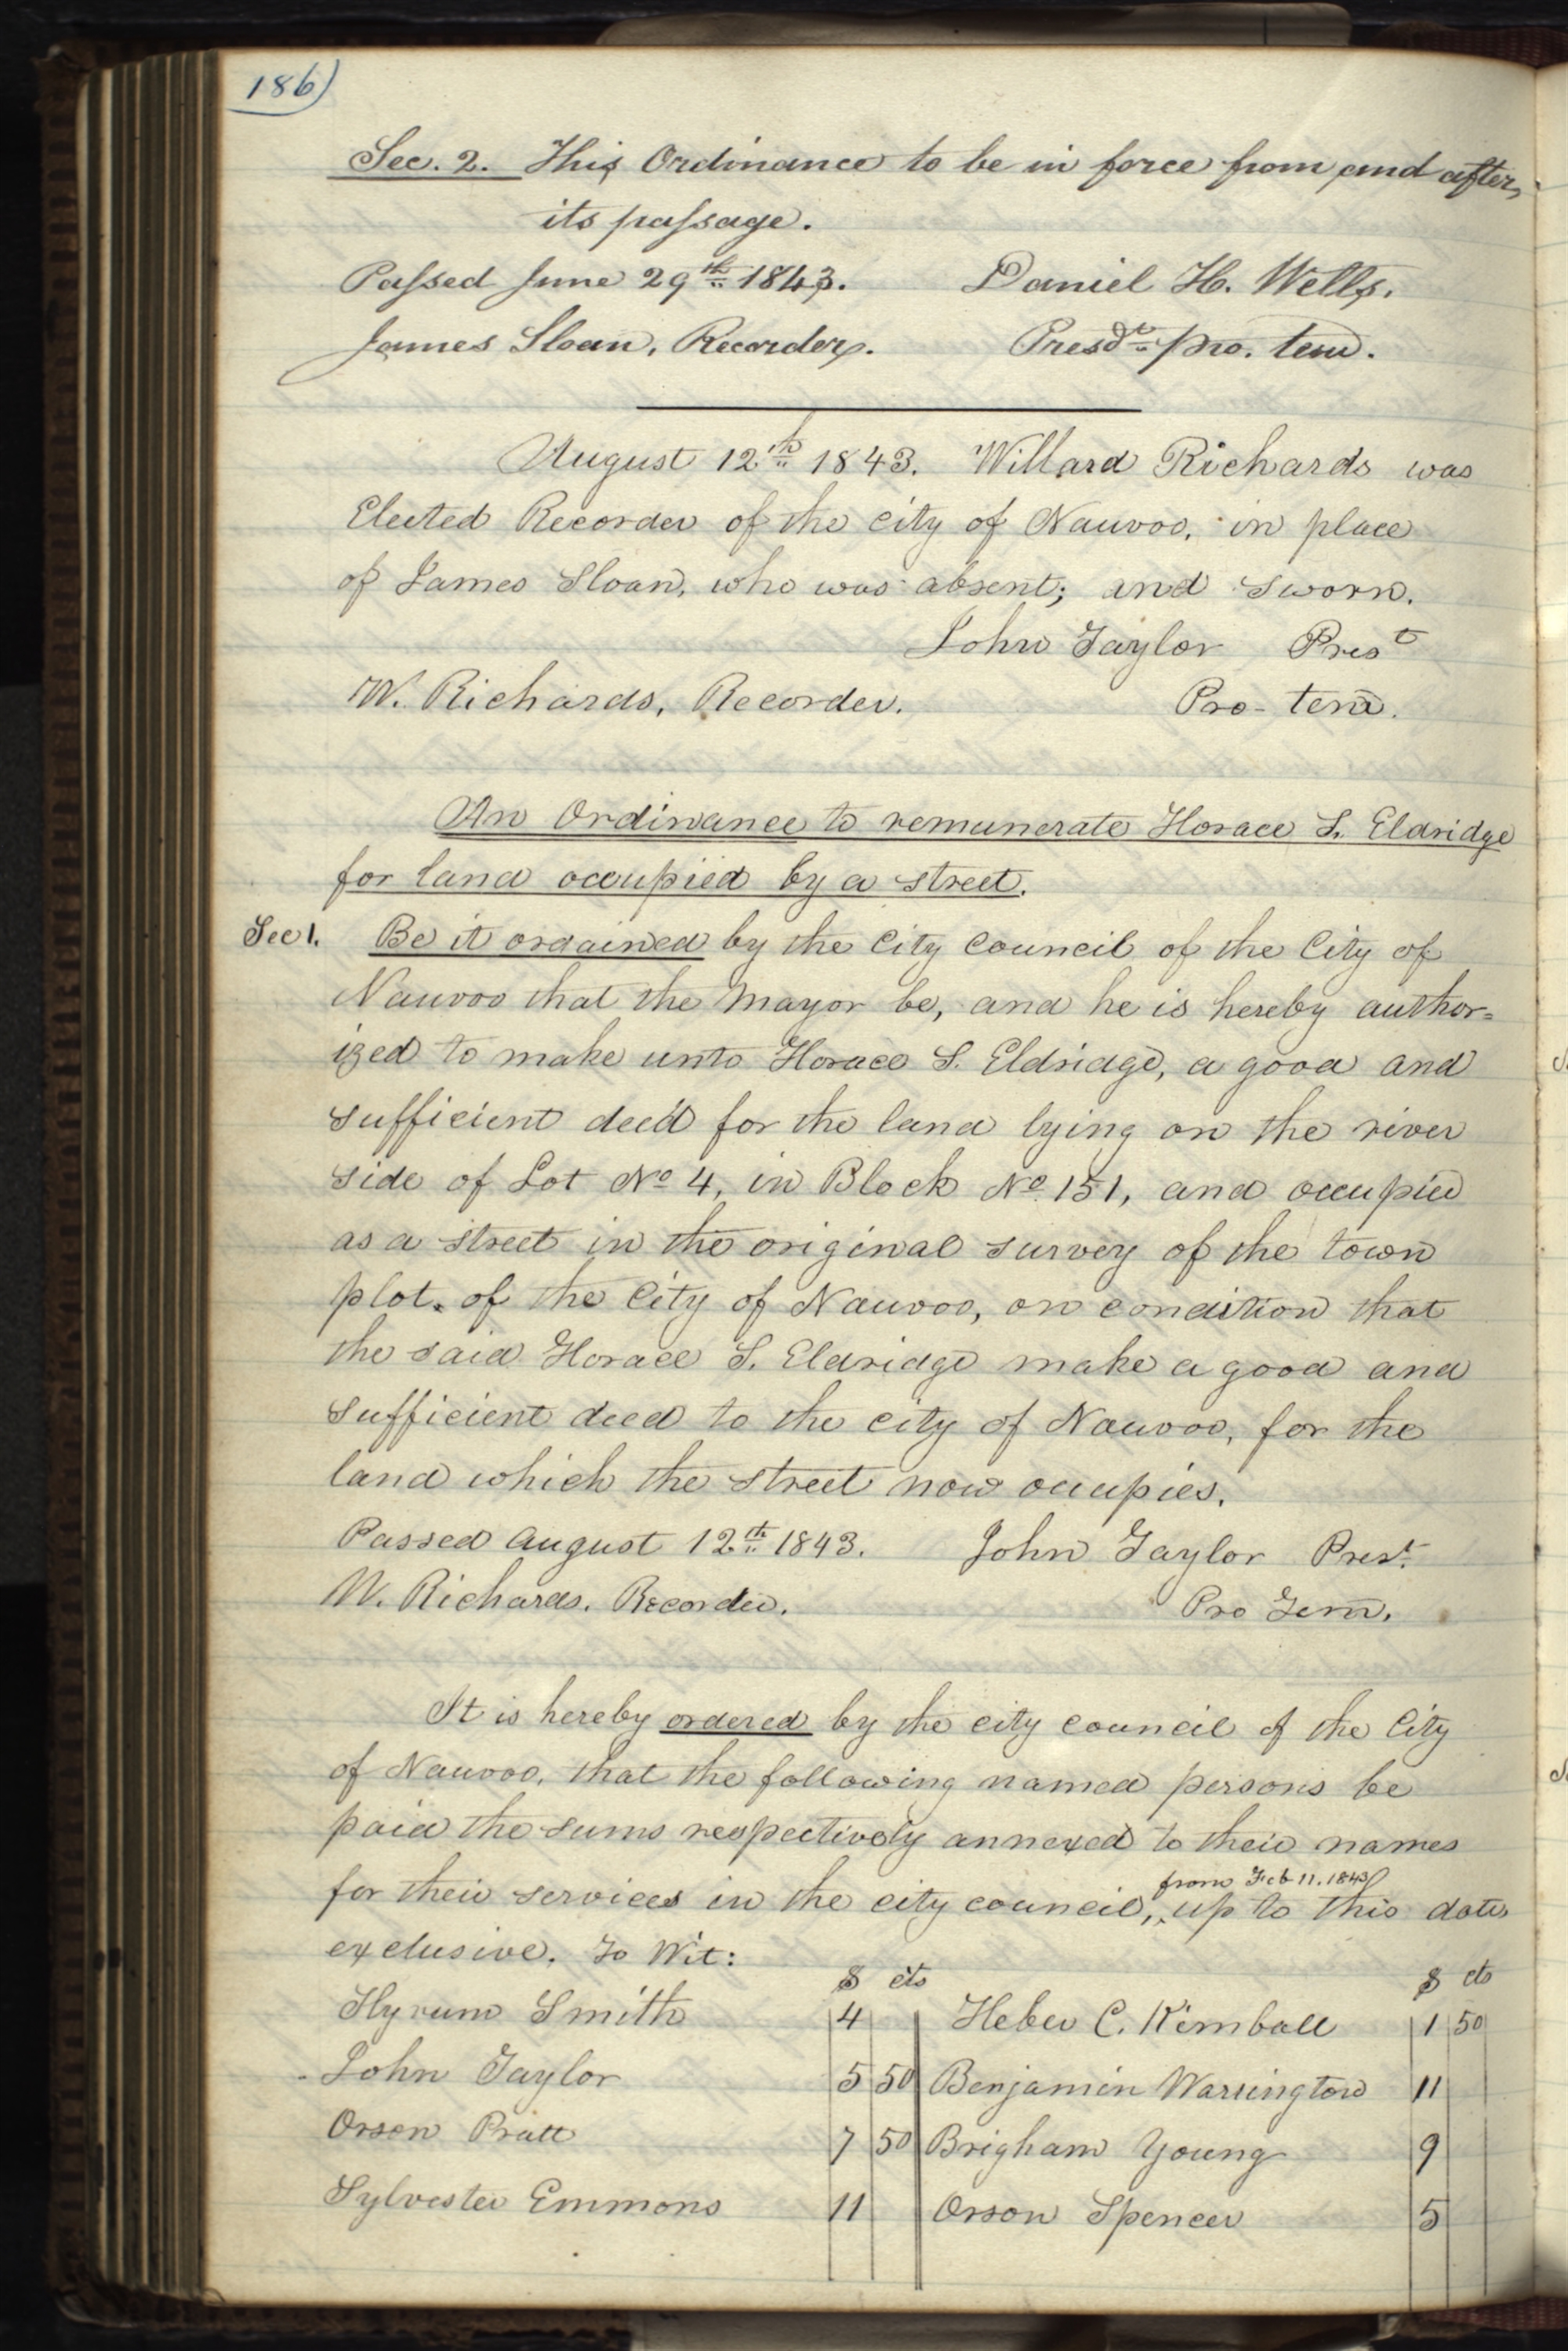 186)
Sec. 2. This Ordinance to be in force from and after
its passage.
Passed June 29th 1843. Daniel H. Wells.
James Sloan, Recorder. Presdt pro. tem.
August 12th 1843. Willard Richards was
Elected Recorder of the city of Nauvoo, in place
of James Sloan, who was absent; and sworn.
John Taylor Prest
W. Richards, Recorder. Pro- tem.
An Ordinance to remunerate Horace S. Eldridge
for land occupied by a street.
Sec 1. Be it ordained by the City Council of the City of
Nauvoo that the Mayor be, and he is hereby author=
ized to make unto Horace S. Eldridge, a good and
sufficient deed for the land lying on the river
side of Lot No 4, in Block No 151, and occupied
as a street in the original survey of the town
plot. of the City of Nauvoo, on condition that
the said Horace S. Eldridge make a good and
sufficient deed to the city of Nauvoo, for the
land which the street now occupies.
Passed August 12th 1843. John Taylor Prest.
W. Richards. Recorder. Pro Tem.
It is hereby ordered by the city council of the City
of Nauvoo, that the following named persons be
paid the sums respectively annexed to their names
from Feb 11. 1843
for their services in the city council, up to this date
exclusive. To Wit:
$ cts $ cts
Hyrum Smith 4 Heber C. Kimball 1 50
John Taylor 5 50 Benjamin Warrington 11
Orson Pratt 7 50 Brigham Young 9
Sylvester Emmons 11 Orson Spencer 5